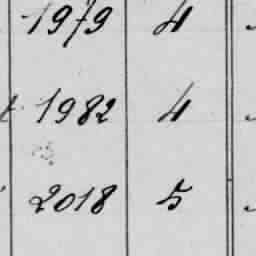 1979 4
1982 4
2018 5